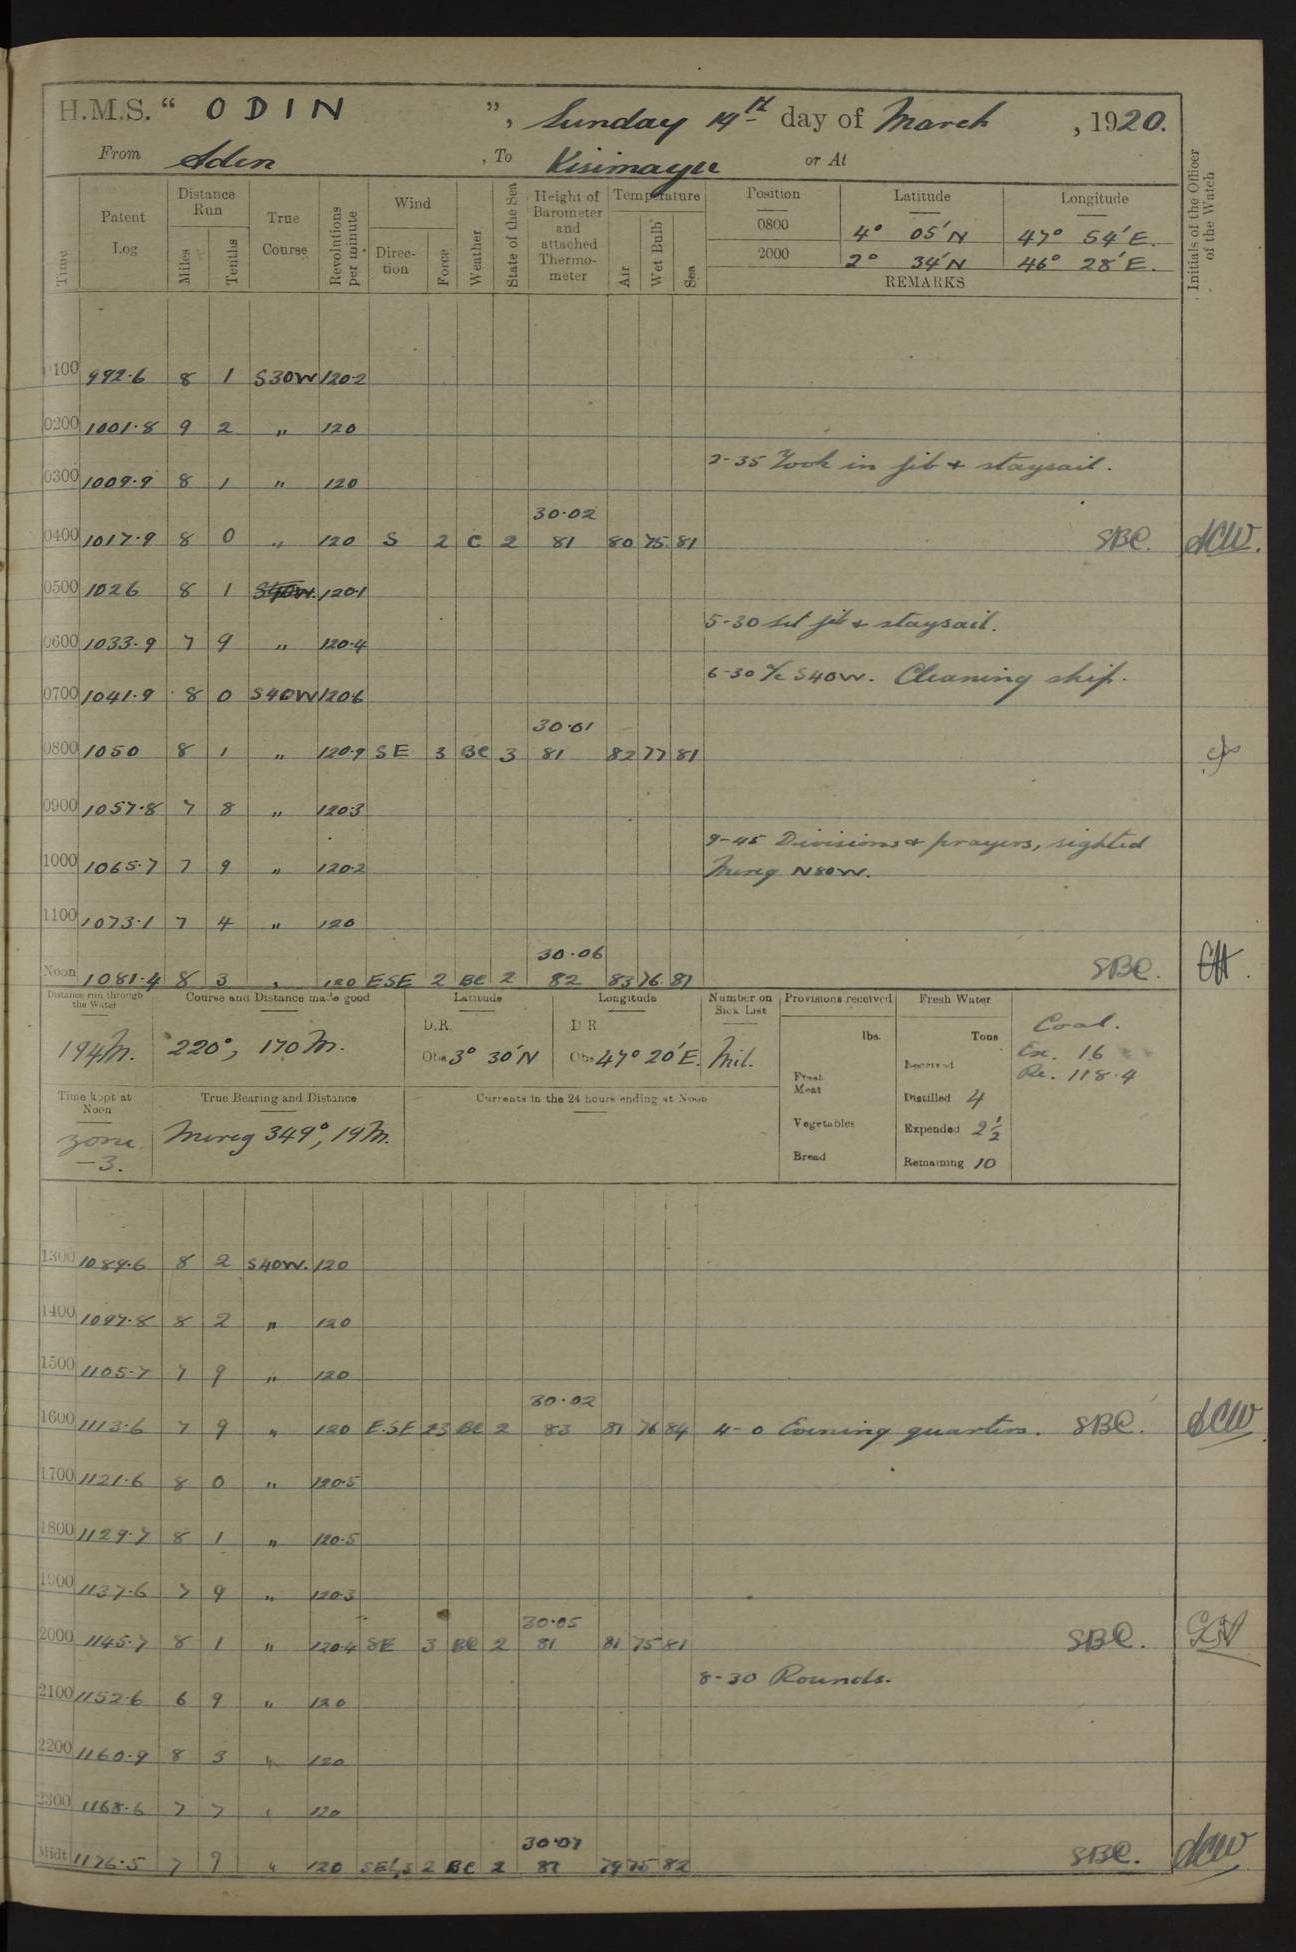 H.M.S. “ ODIN ”, Sunday 14th day of March , 1920.
From Aden , To Kisimayu or At
Time Patent Log Distance Run Miles Tenths True Course Revolutions per minute Wind Direction Force Weather State of the Sea Height of Barometer and attached Thermometer Temperature Air Wet Bulb Sea Position Latitude Longitude Initials of the Officer of the Watch
0800 4° 05′ N 47° 54′ E.
2000 2° 34′ N 46° 28′ E.
REMARKS
0100 992·6 8 1 S30W 120·2
0200 1001·8 9 2 „ 120
2-35 Took in jib + staysail.
0300 1009·9 8 1 „ 120
30·02
0400 1017·9 8 0 „ 120 S 2 C 2 81 80 75 81 SBC. SCW.
0500 1026 8 1 S40W. 120·1
5-30 Set jib + staysail.
0600 1033·9 7 9 „ 120·4
6-30 a/c S40W. Cleaning ship.
0700 1041·9 8 0 S40W 120·6
30·01
0800 1050 8 1 „ 120·9 SE 3 BC 3 81 82 77 81
0900 1057·8 7 8 „ 120·3
9-45 Divisions + prayers, sighted
1000 1065·7 7 9 „ 120·2 Mereg N80W.
1100 1073·1 7 4 „ 120
30·06
Noon 1081·4 8 3 „ 120 ESE 2 BC 2 82 83 76 81 SBC.
Distance run through the Water Course and Distance made good Latitude Longitude Number on Sick List Provisions received Fresh Water Coal.
194M. 220°, 170M. D.R. Obs 3° 30′ N D R Obs 47° 20′ E. Nil. lbs. Tons
Received Ex. 16
Fresh Meat Re. 118·4
Time kept at Noon True Bearing and Distance Currents in the 24 hours ending at Noon Distilled 4
zone -3. Mereg 349°, 19M. Vegetables Expended 2½
Bread Remaining 10
1300 1089·6 8 2 S40W. 120
1400 1097·8 8 2 „ 120
1500 1105·7 7 9 „ 120
30·02
1600 1113·6 7 9 „ 120 E.SE 23 BC 2 83 81 76 84 4-0 Evening quarters. SBC. SCW
1700 1121·6 8 0 „ 120·5
1800 1129·7 8 1 „ 120·5
1900 1137·6 7 9 „ 120·3
30·05
2000 1145·7 8 1 „ 120·4 SE 3 BC 2 81 81 75 81 SBC.
8-30 Rounds.
2100 1152·6 6 9 „ 120
2200 1160·9 8 3 „ 120
2300 1168·6 7 7 „ 120
30·07
Midt 1176·5 7 9 „ 120 SE/S 2 BC 2 81 79 75 82 SBC. SCW